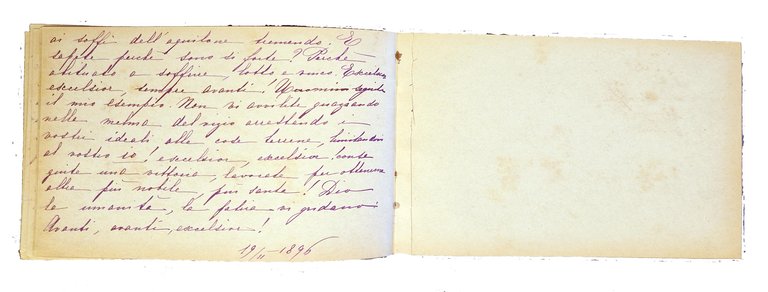 ai soffi dell'aquilone tremendo. E
sapete perchè sono sì forte? Perchè
abituato a soffrire, lotto e vinco. Excelsior,
excelsior, sempre avanti! O uomini seguite
il mio esempio. Non vi avvilite guazzando
nella melma del vizio arrestando i
vostri ideali alle cose terrene, limitandovi
al vostro io! excelsior, excelsior! conse
guite una vittoria, lavorate per ottenerne
altra più nobile, più santa! Dio
la umanità, la patria vi gridano:
Avanti, avanti, excelsior!
19/II-1896